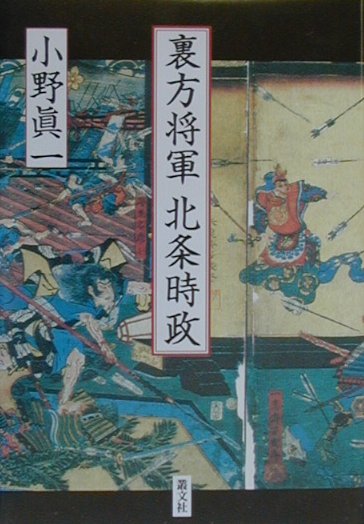 裏方将軍 北条時政
小野眞一
叢文社